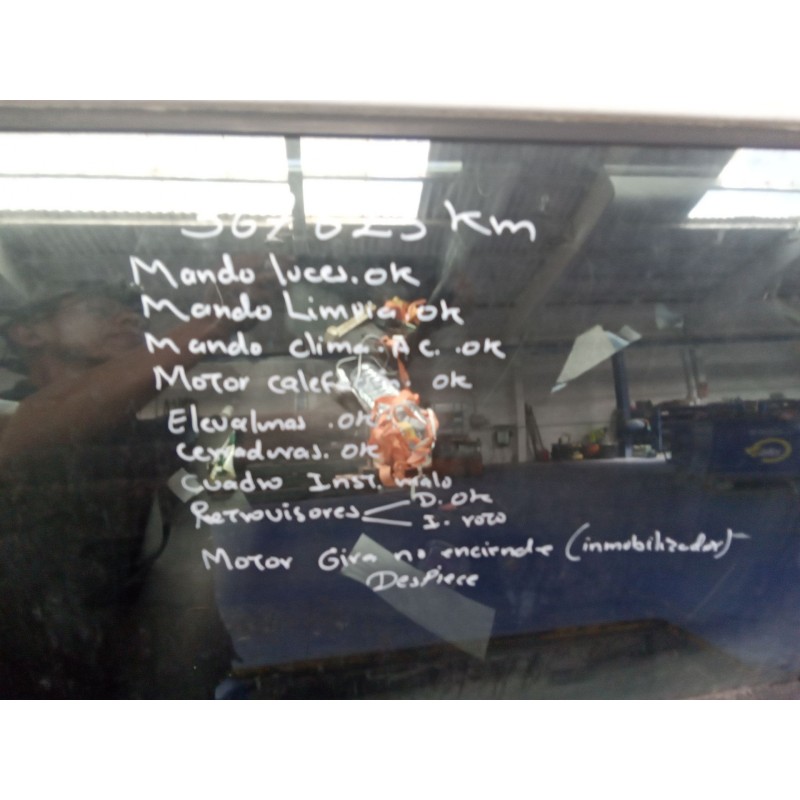 Km
Mando luces. ok
Mando Limpia. ok
Mando clima. A C. ok
Motor ok
Elevalunas . ok
Cerraduras. ok
Cuadro Inst. malo
Retrovisores D. ok
I. roto
Motor Gira no enciende (inmobilizador)
Despiece